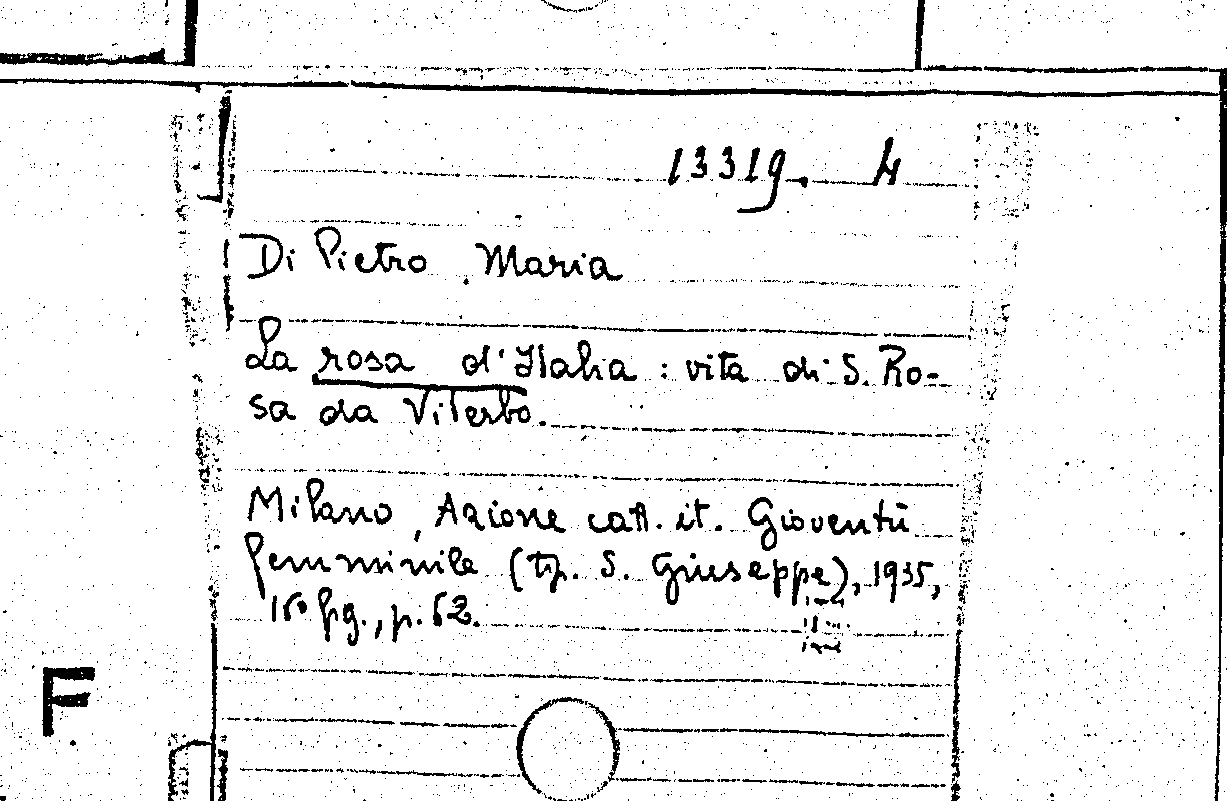 13319. 4
Di Pietro, Maria
La rosa d'Italia : vita di S. Ro-
sa da Viterbo.
Milano, Azione catt. it. Gioventù
femminile (tip. S. Giuseppe), 1935,
16° fig., p. 62.
F